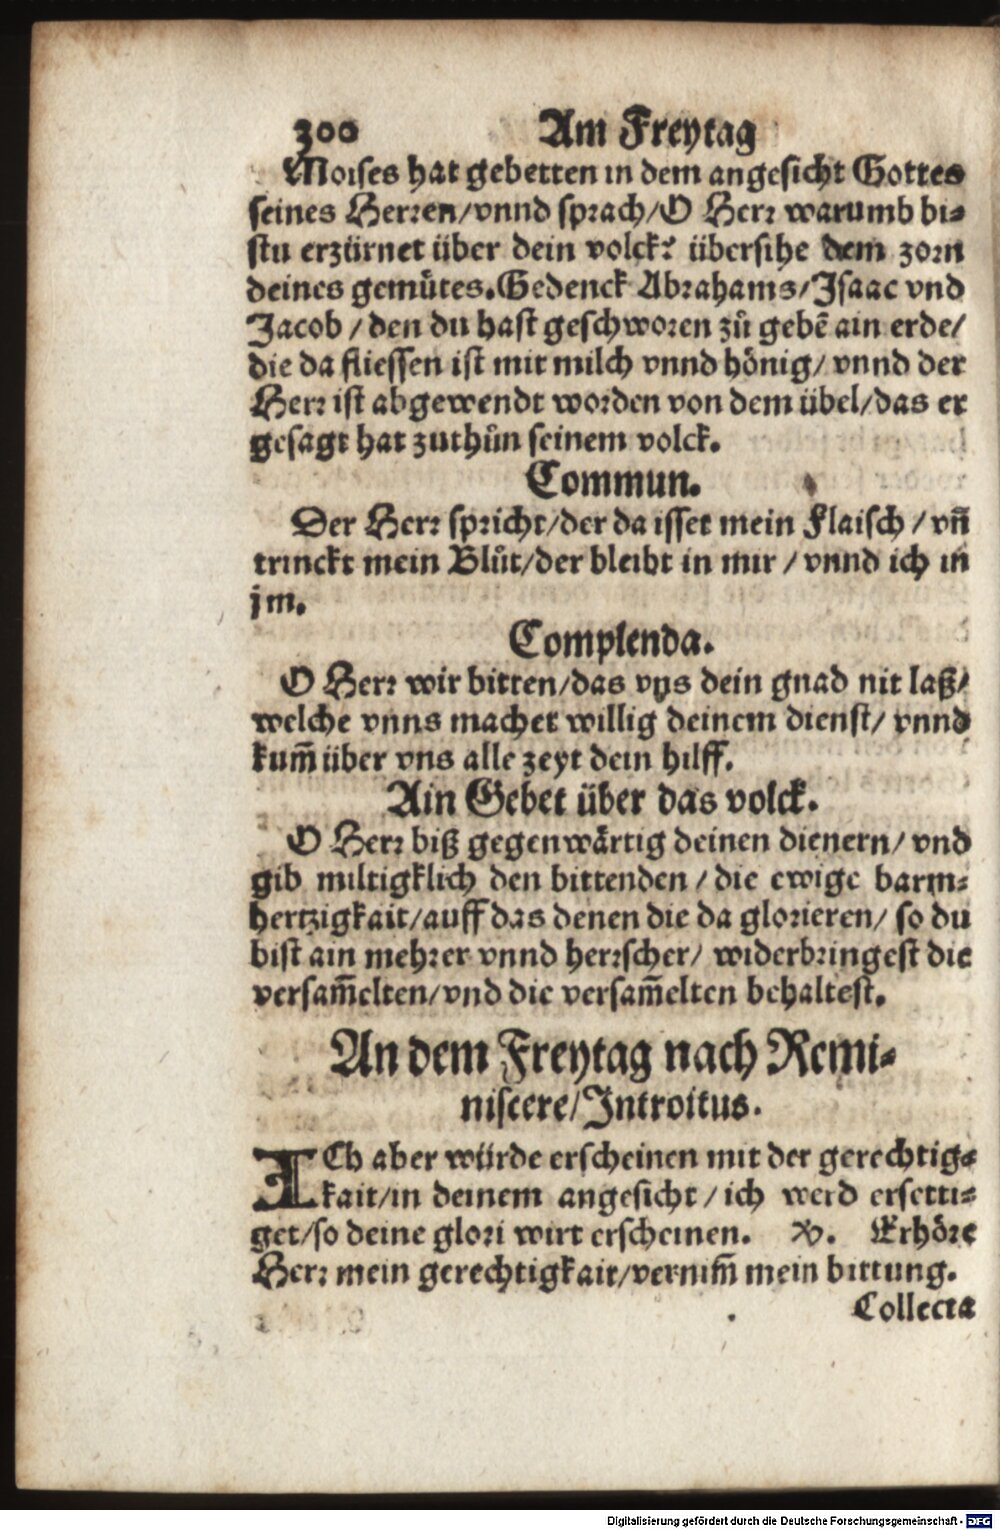 300 Am Freytag
Moises hat gebetten in dem angesicht Gottes
seines Herren/vnnd sprach/O Herr warumb bi-
stu erzürnet über dein volck? übersihe dem zorn
deines gemütes.Gedenck Abrahams/Isaac vnd
Jacob/den du hast geschworen zů gebē ain erde/
die da fliessen ist mit milch vnnd hönig/vnnd der
Herr ist abgewendt worden von dem übel/das er
gesagt hat zuthůn seinem volck.
Commun.
Der Herr spricht/der da isset mein Flaisch/vn̄
trinckt mein Blůt/der bleibt in mir/vnnd ich in
jm.
Complenda.
O Herr wir bitten/das vns dein gnad nit laß/
welche vnns machet willig deinem dienst/vnnd
kum̄ über vns alle zeyt dein hilff.
Ain Gebet über das volck.
O Herr biß gegenwärtig deinen dienern/vnd
gib miltigklich den bittenden/die ewige barm-
hertzigkait/auff das denen die da glorieren/so du
bist ain mehrer vnnd herrscher/widerbringest die
versam̄elten/vnd die versam̄elten behaltest.
An dem Freytag nach Remi-
niscere/Introitus.
ICh aber würde erscheinen mit der gerechtig-
kait/in deinem angesicht/ich werd ersetti-
get/so deine glori wirt erscheinen. ℣. Erhöre
Herr mein gerechtigkait/vernim̄ mein bittung.
Collecta
Digitalisierung gefördert durch die Deutsche Forschungsgemeinschaft - DFG